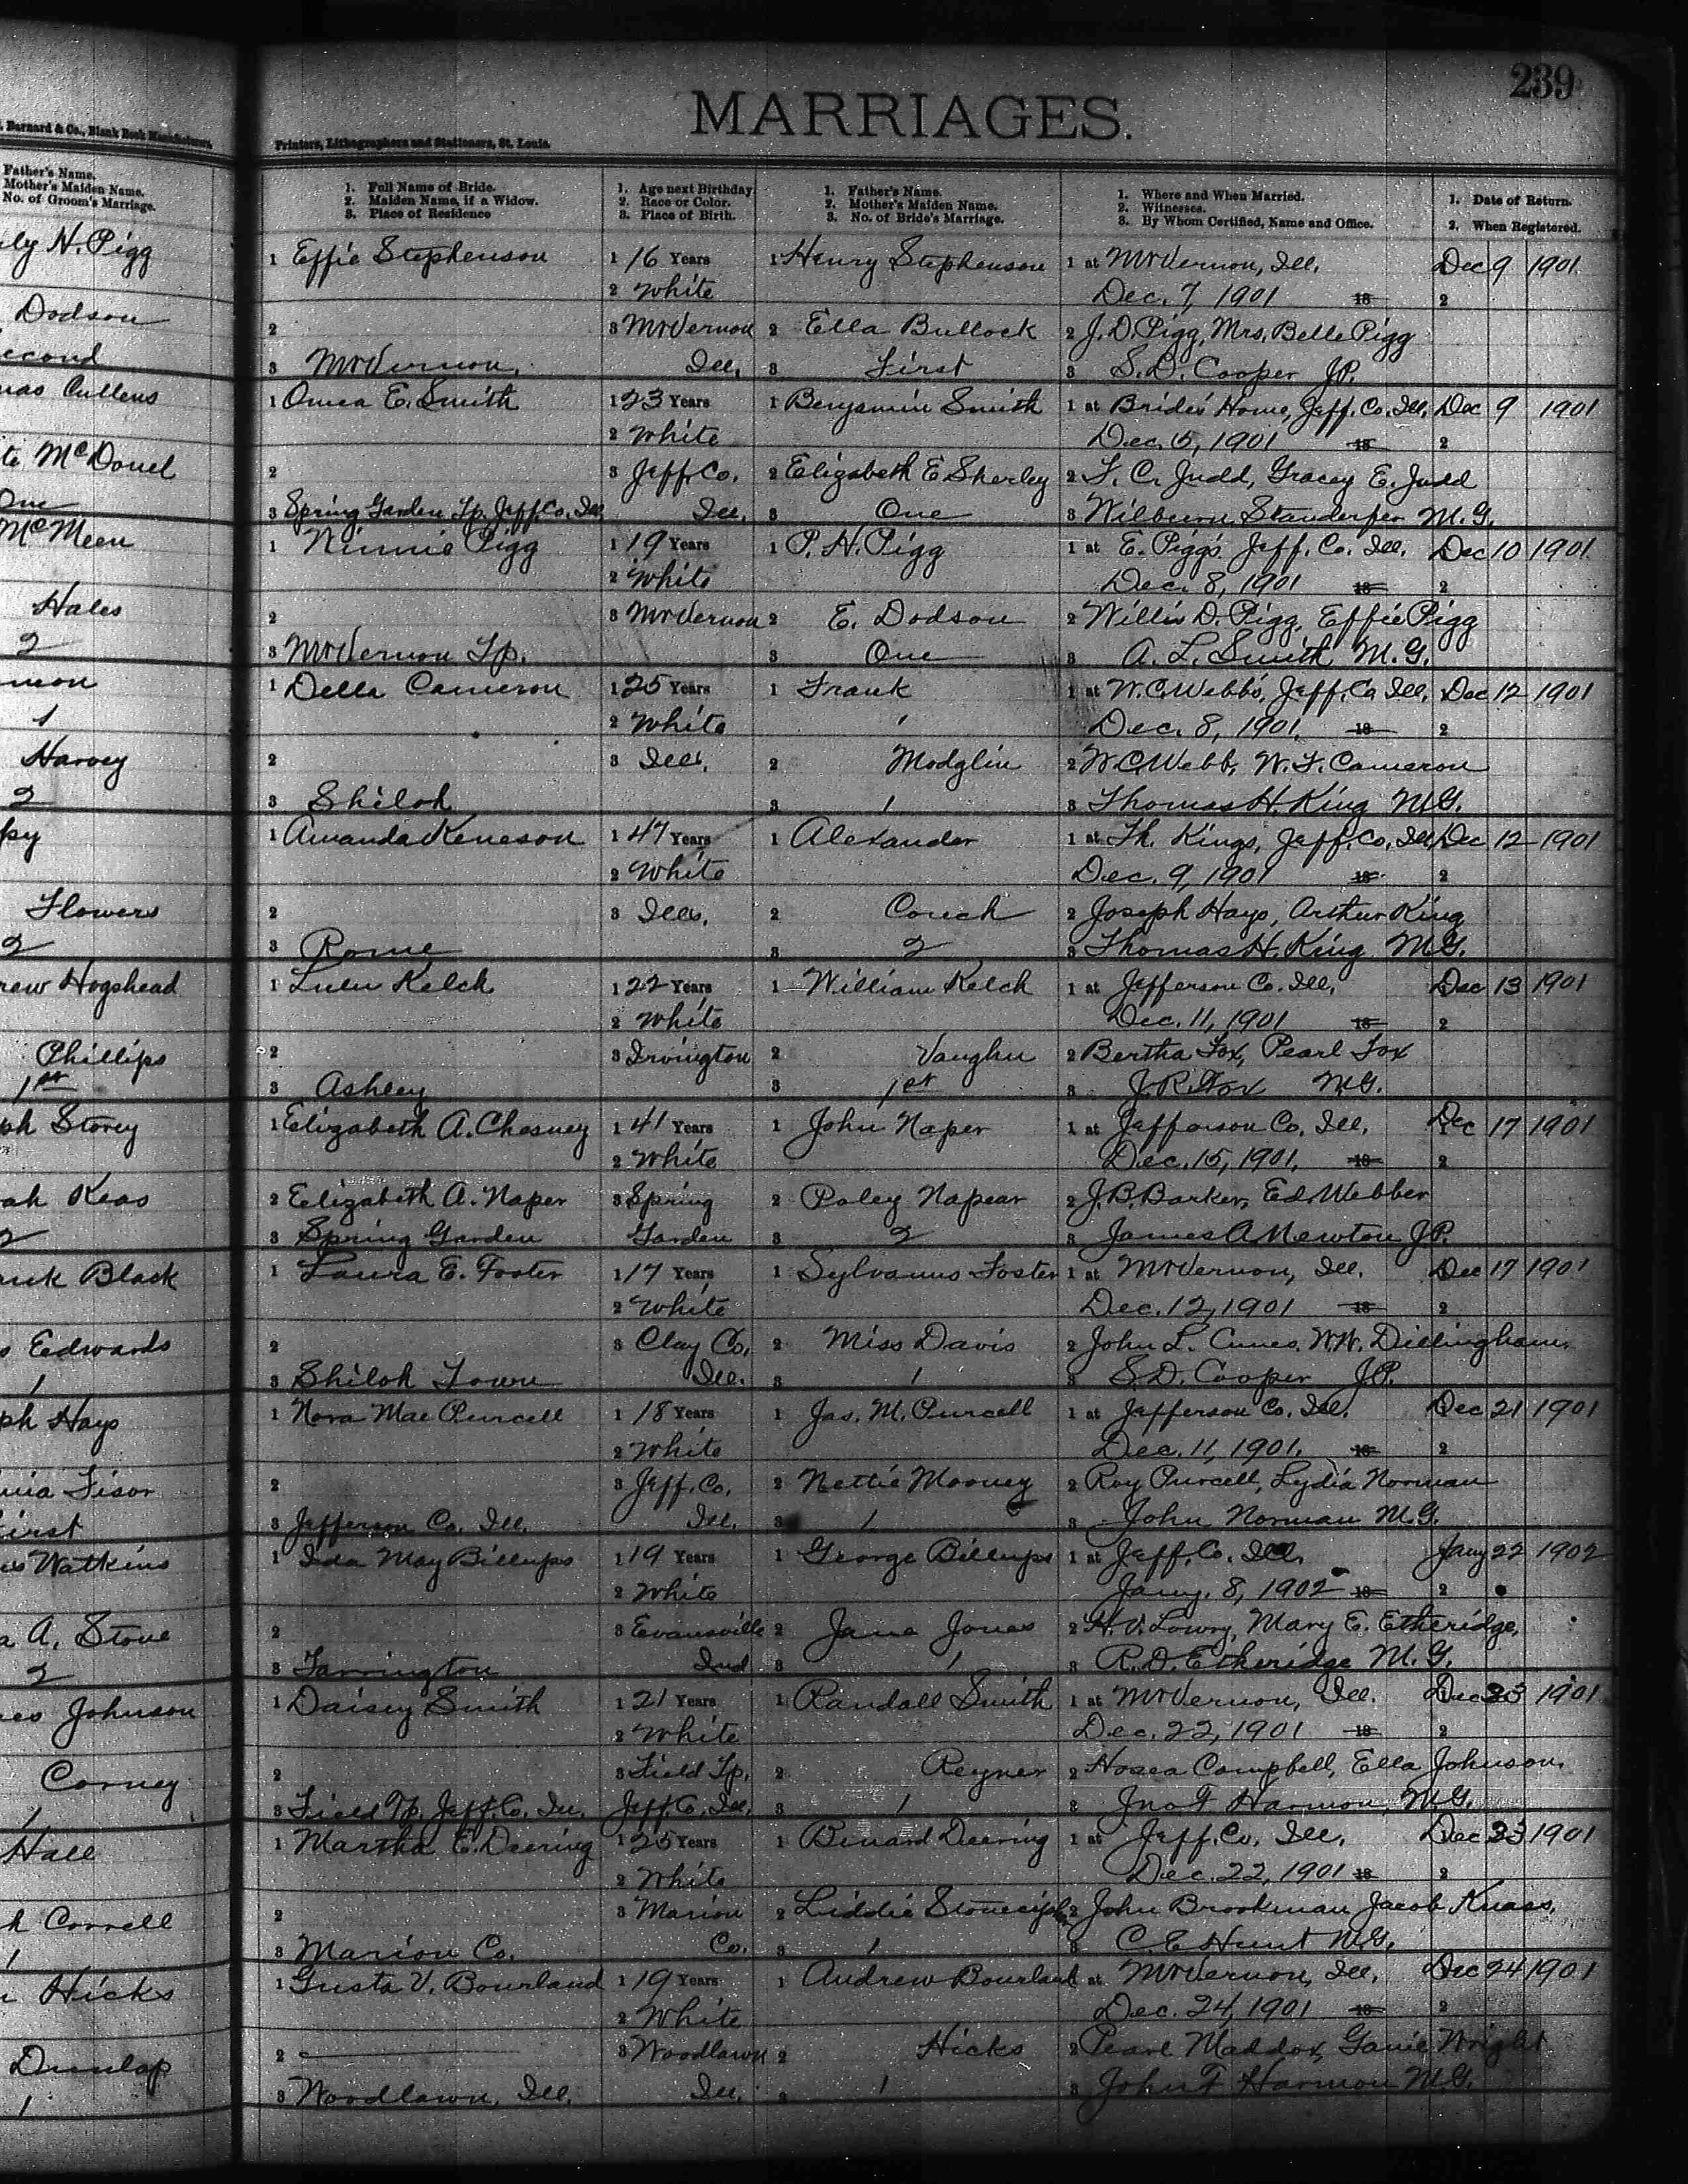 239
MARRIAGES.
Barnard & Co., Blank Book Manufacturers,
Printers, Lithographers and Stationers, St. Louis.
Father's Name.
Mother's Maiden Name.
No. of Groom's Marriage.
1. Full Name of Bride.
2. Maiden Name, if a Widow.
3. Place of Residence
1. Age next Birthday
2. Race or Color.
3. Place of Birth.
1. Father's Name.
2. Mother's Maiden Name.
3. No. of Bride's Marriage.
1. Where and When Married.
2. Witnesses.
3. By Whom Certified, Name and Office.
1. Date of Return.
2. When Registered.
H. Pigg 1 Effie Stephenson 1 16 Years 1 Henry Stephenson 1 at Mt Vernon, Ill. Dec 9 1901
2 White Dec. 7, 1901 18 2
Dodson 2 3 Mt Vernon 2 Ella Bullock 2 J. D. Pigg, Mrs. Belle Pigg
3 Mt Vernon, Ill. 3 First 3 S. D. Cooper J.P.
Cullens 1 Omea E. Smith 1 23 Years 1 Benjamin Smith 1 at Bride's Home, Jeff. Co. Ill. Dec 9 1901
2 White Dec. 5, 1901 18 2
McDonel 2 3 Jeff. Co. 2 Elizabeth E Sherley 2 F. C. Judd, Gracey E. Judd
One 3 Spring Garden Tp. Jeff. Co. Ill Ill. 3 One 3 Wilburn Standerfer M.G.
McMeen 1 Ninnie Pigg 1 19 Years 1 P. H. Pigg 1 at E. Pigg's Jeff. Co. Ill. Dec 10 1901
2 White Dec. 8, 1901 18 2
Hales 2 3 Mt Vernon 2 E. Dodson 2 Willis D. Pigg, Effie Pigg
2 3 Mt Vernon Tp. 3 One 3 A. L. Smith M.G.
1 Della Cameron 1 25 Years 1 Frank 1 at W. C. Webb's, Jeff. Co Ill. Dec 12 1901
1 2 White Dec. 8, 1901. 18 2
Harvey 2 3 Ills. 2 Modglin 2 W. C. Webb, W. F. Cameron
2 3 Shiloh 3 1 3 Thomas H. King M.G.
1 Amanda Keneson 1 47 Years 1 Alexander 1 at Th. Kings, Jeff. Co. Ill. Dec 12 1901
2 White Dec. 9, 1901 18 2
Flowers 2 3 Ills. 2 Couch 2 Joseph Hays, Arthur King
2 3 Rome 3 2 3 Thomas H. King M.G.
Hogshead 1 Lulu Kelch 1 22 Years 1 William Kelch 1 at Jefferson Co. Ill. Dec 13 1901
2 White Dec. 11, 1901 18 2
Phillips 2 3 Irvington 2 Vaughn 2 Bertha Fox, Pearl Fox
1st 3 Ashley 3 1st 3 J. R. Fox M.G.
Storey 1 Elizabeth A. Chesney 1 41 Years 1 John Naper 1 at Jefferson Co. Ill. Dec 17 1901
2 White Dec. 15, 1901. 18 2
Keas 2 Elizabeth A. Naper 3 Spring 2 Poley Napear 2 J. B. Barker, Ed. Webber
2 3 Spring Garden Garden 3 2 3 James A Newton J.P.
Black 1 Laura E. Foster 1 17 Years 1 Sylvanus Foster 1 at Mt Vernon, Ill. Dec 17 1901
2 White Dec. 12, 1901 18 2
Edwards 2 3 Clay Co. 2 Miss Davis 2 John L. W.W. Dillingham.
1 3 Shiloh Town Ill. 3 1 3 S. D. Cooper J.P.
Hays 1 Nora Mae Purcell 1 18 Years 1 Jas. M. Purcell 1 at Jefferson Co. Ill. Dec 21 1901
2 White Dec. 11, 1901. 18 2
Fisor 2 3 Jeff. Co. 2 Nettie Mooney 2 Roy Purcell, Lydia Norman
3 Jefferson Co. Ill. Ill. 3 1 3 John Norman M.G.
Watkins 1 Ida May Billups 1 19 Years 1 George Billups 1 at Jeff. Co. Ill. Jany 22 1902
2 White Jany. 8, 1902 18 2
A. Stone 2 3 Evansville 2 Jane Jones 2 H. V. Lowry, Mary E. Etheridge,
2 3 Farrington Ind 3 1 3 R. D. Etheridge M.G.
Johnson 1 Daisey Smith 1 21 Years 1 Randall Smith 1 at Mt Vernon, Ill. Dec 23 1901
2 White Dec. 22, 1901 18 2
Corney 2 3 Field Tp. 2 Reyner 2 Hosea Campbell, Ella Johnson.
1 3 Field Tp. Jeff. Co. Ill. Jeff. Co. Ill. 3 1 3 Jno F Harmon, M.G.
Hall 1 Martha E. Deering 1 25 Years 1 Binard Deering 1 at Jeff. Co. Ill. Dec 23 1901
2 White Dec. 22, 1901 18 2
Correll 2 3 Marion 2 Liddie Stonecipher 2 John Brookman Jacob Knass.
1 3 Marion Co. Co. 3 1 3 C. E. Hunt M.G.
Hicks 1 Gusta V. Bourland 1 19 Years 1 Andrew Bourland at Mt Vernon, Ill. Dec 24 1901
2 White Dec. 24, 1901 18 2
Dunlap 2 3 Woodlawn 2 Hicks 2 Pearl Maddox, Wright
1 3 Woodlawn, Ill. Ill. 3 1 3 John F Harmon M.G.